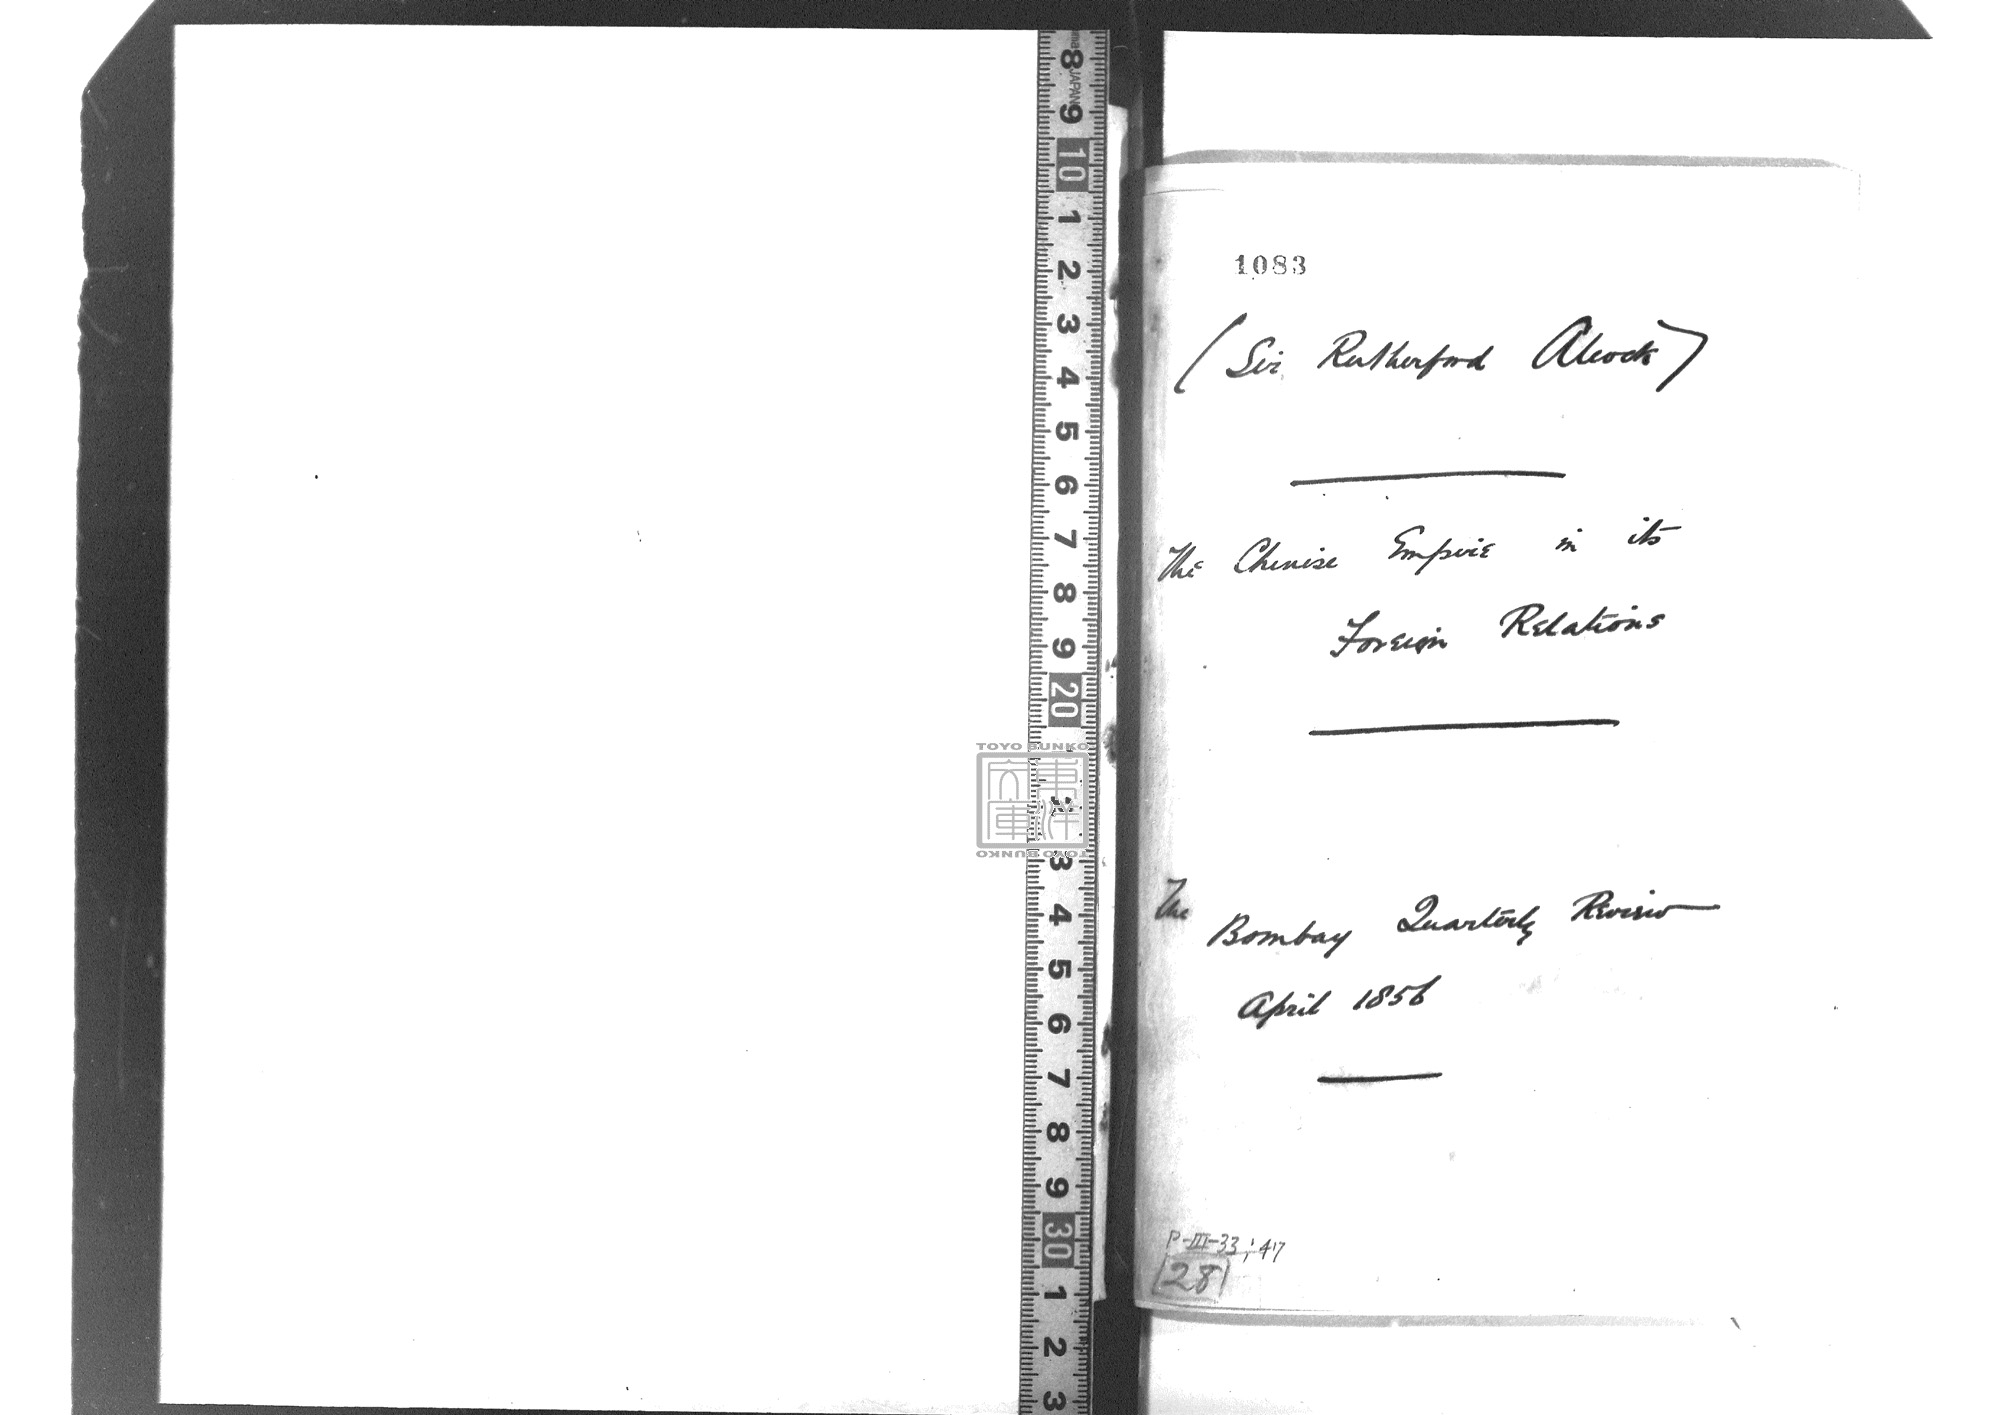 1083
(Sir Rutherford Alcock)
The Chinese Empire in its
Foreign Relations
The Bombay Quarterly Review
April 1856
P-III-33; 47
28
TOYO BUNKO
東洋
文庫
TOYO BUNKO
JAPAN
8
9
10
1
2
3
4
5
6
7
8
9
20
3
4
5
6
7
8
9
30
1
2
3